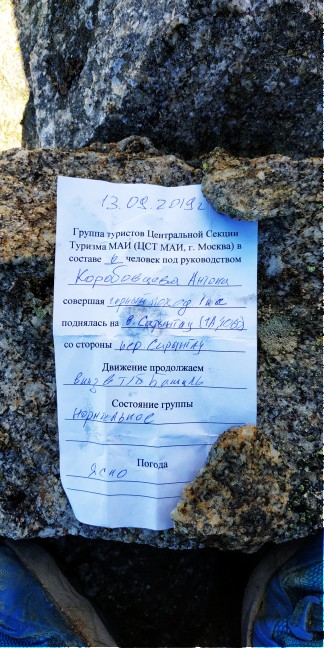 13.09.2019г
Группа туристов Центральной Секции
Туризма МАИ (ЦСТ МАИ, г. Москва) в
составе 6 человек под руководством
Коробовцева Антона
совершая горный поход 1 кс
поднялась на в. Сарынтау (1А, Ю-В)
со стороны пер. Сарынтау
Движение продолжаем
вниз в т/б Башиль
Состояние группы
нормальное
Погода
Ясно